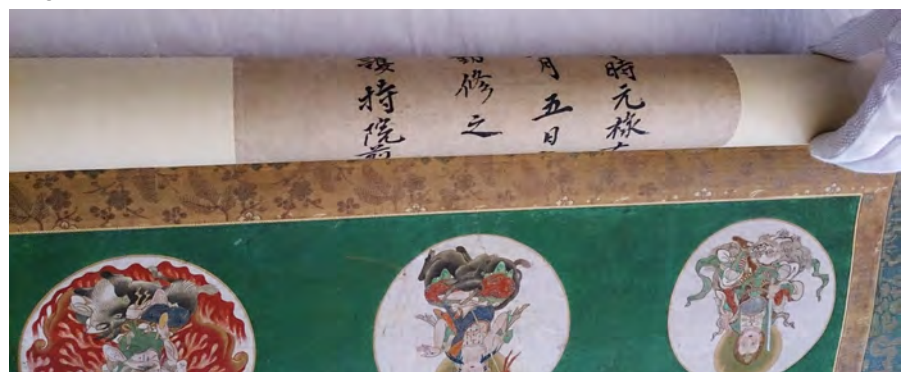 時元禄
月五日
修之
護持院前